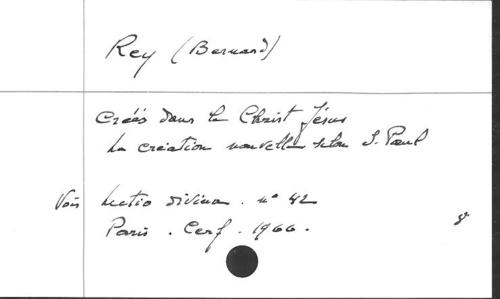 Rey (Bernard)
Créés dans le Christ Jésus
La création nouvelle selon S. Paul
Voir Lectio divina . n° 42
Paris . Cerf . 1966 .
8°